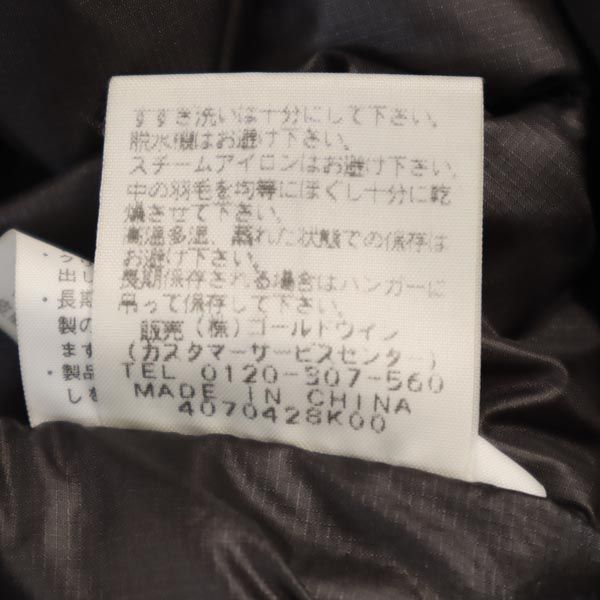 すすぎ洗いは十分にして下さい。
脱水機はお避け下さい。
スチームアイロンはお避け下さい。
中の羽毛を均等にほぐし十分に乾
燥させて下さい。
高温多湿、蒸れた状態での保存は
お避け下さい。
長期保存される場合はハンガーに
吊って保存して下さい。
販売(株)ゴールドウイン
(カスタマーサービスセンター)
TEL 0120-307-560
MADE IN CHINA
4070428K00
出し
・長期
製の
ます
・製品
しを